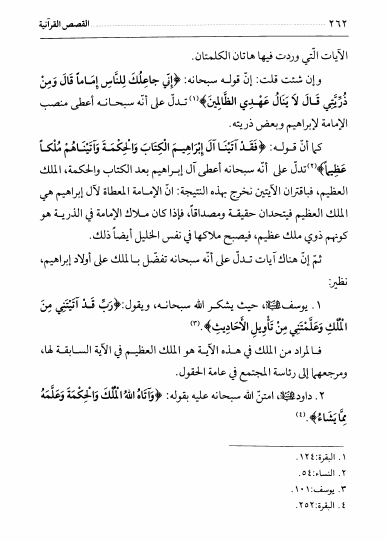 ٢٦٢ القصص القرآنية
الآيات الّتي وردت فيها هاتان الكلمتان.
وإن شئت قلت: إنّ قوله سبحانه: ﴿إِنّي جاعِلُكَ لِلنّاسِ إِماماً قَالَ وَمِنْ
ذُرِّيَّتِي قَالَ لاَ يَنَالُ عَهْدِي الظَّالِمِينَ﴾(١) تدلّ على أنّه سبحانه أعطى منصب
الإمامة لإبراهيم وبعض ذريته.
كما أنّ قوله: ﴿فَقَدْ آتَيْنَا آلَ إِبْرَاهِيمَ الكِتَابَ وَالْحِكْمَةَ وَآتَيْنَاهُمْ مُلْكاً
عَظِيماً﴾(٢) تدلّ على أنّه سبحانه أعطى آل إبراهيم بعد الكتاب والحكمة، الملك
العظيم، فباقتران الآيتين نخرج بهذه النتيجة: انّ الإمامة المعطاة لآل إبراهيم هي
الملك العظيم فيتحدان حقيقة ومصداقاً، فإذا كان ملاك الإمامة في الذرية هو
كونهم ذوي ملك عظيم، فيصبح ملاكها في نفس الخليل أيضاً ذلك.
ثمّ إنّ هناك آيات تدلّ على أنّه سبحانه تفضّل بالملك على أولاد إبراهيم،
نظير:
١. يوسف، حيث يشكر الله سبحانه، ويقول: ﴿رَبِّ قَدْ آتَيْتَنِي مِنَ
الْمُلْكِ وَعَلَّمْتَنِي مِنْ تَأْوِيلِ الأَحَادِيثِ﴾.(٣)
فالمراد من الملك في هذه الآية هو الملك العظيم في الآية السابقة لها،
ومرجعهما إلى رئاسة المجتمع في عامة الحقول.
٢. داود، امتنّ الله سبحانه عليه بقوله: ﴿وَآتَاهُ اللهُ الْمُلْكَ وَالْحِكْمَةَ وَعَلَّمَهُ
مِمَّا يَشَاءُ﴾.(٤)
١. البقرة:١٢٤.
٢. النساء:٥٤.
٣. يوسف:١٠١.
٤. البقرة:٢٥٢.